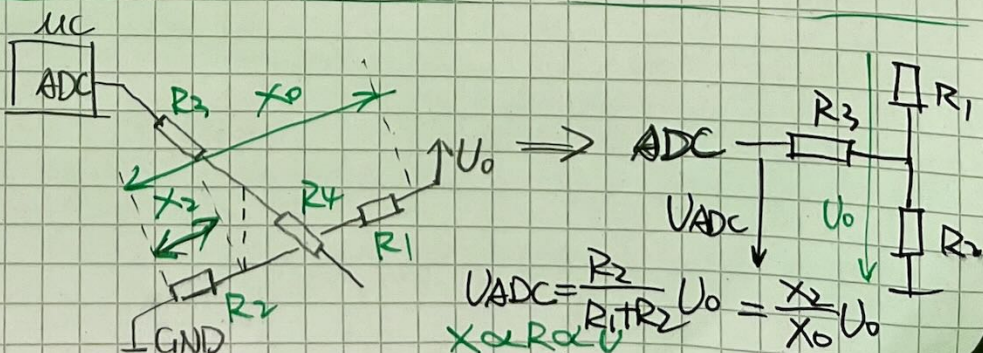 μC
ADC
R3
X0
X2
R4
U0
R1
R2
GND
⇒
ADC
R3
R1
UADC
U0
R2
UADC = R2/(R1+R2) U0 = X2/X0 U0
X∝R∝U